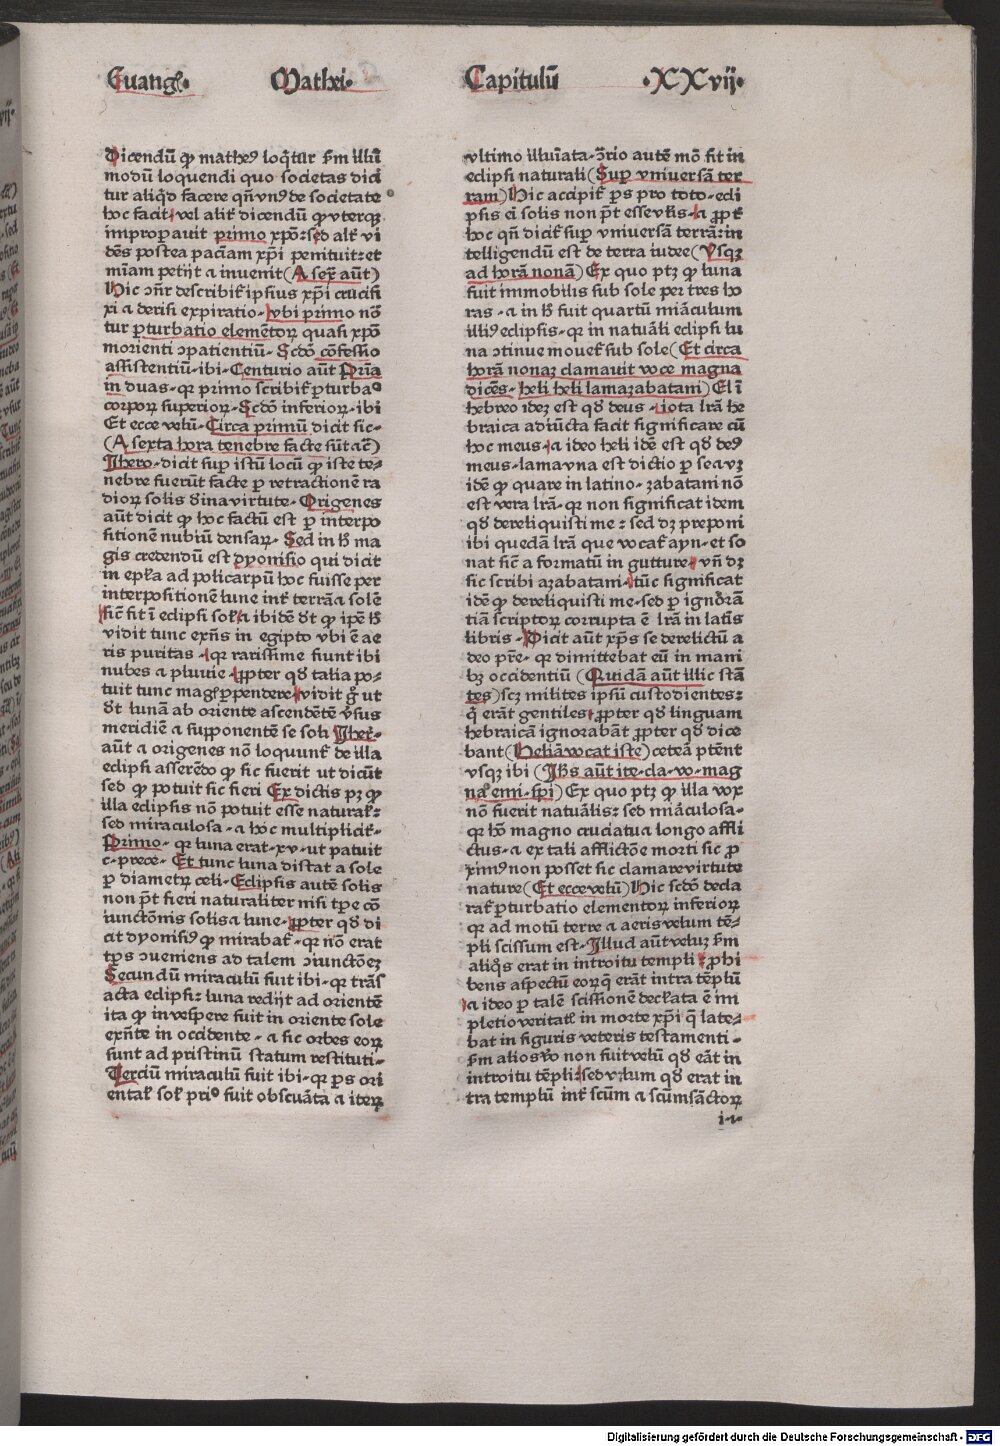 Euangł. Mathei. Capitulū .XXvij.
Dicendū ꝙ matheꝰ loq̄tur ẜm illū
modū loquendi quo societas dici
tur aliq̄d facere qn̄ vnꝰ de societate
hoc facit. vel alit̓ dicendū ꝙ vterqꝫ
improꝑauit primo xpō: sed alt̓ vi
dēs postea paciam xp̄i penituit: et
mīam petijt ⁊ inuenit (A sex̄ aūt)
Hic ↄn̄r describit̓ ipsius xp̄i crucifi
xi ⁊ derisi expiratio. vbi primo nō
tur ꝑturbatio elemētoꝝ quasi xpō
morienti ↄpatientiū. Scd̄o ꝯfessio
assistentiū. ibi. Centurio aūt Prīa
in duas. qꝛ primo scribit̓ ꝑturbaᵒ
corpoꝝ superioꝝ. Scd̄o inferioꝝ. ibi
Et ecce velū. Circa primū dicit sic.
(A sexta hora tenebre facte sūt ⁊c̄)
Jhero. dicit suꝑ istū locū ꝙ iste te⸗
nebre fuerūt facte ꝑ retractionē ra
dioꝝ solis diuina virtute. Origenes
aūt dicit ꝙ hoc factū est ꝑ interpo
sitionē nubiū densaꝝ. Sed in h̓ ma
gis credendū est dyonisio qui dicit
in epł̓a ad policarpū hoc fuisse per
interpositionē lune int̓ terrā ⁊ solē
sic̄ fit ī eclipsi sol̓. ⁊ ibidē dt̓ ꝙ ipē h̓
vidit tunc exn̄s in egipto vbi ē ae
ris puritas. qꝛ rarissime fiunt ibi
nubes ⁊ pluuie. ꝓpter qd̓ talia po⸗
tuit tunc mag̓ ꝑpendere. vidit g̓ ut
dt̓ lunā ab oriente ascendētē v̓sus
meridiē ⁊ supponentē se soli Jher.
aūt ⁊ origenes nō loquunt̓ de illa
eclipsi asserēdo ꝙ sic fuerit ut dicūt
sed ꝙ potuit sic fieri Ex dictis pꝫ ꝙ
illa eclipsis nō potuit esse natural̓:
sed miraculosa. ⁊ hoc multiplicit̓.
Primo. qꝛ luna erat. xv. ut patuit
c. prece. Et tunc luna distat a sole
ꝑ diametꝝ celi. Eclipsis autē solis
non pt̄ fieri naturaliter nisi tꝑe cō
iunctōnis solis ⁊ lune. ꝓpter qd̓ di
cit dyonisiꝰ ꝙ mirabat̓. qꝛ nō erat
tp̄s ↄueniens ad talem ↄiunctōeꝫ
Secundū miraculū fuit ibi. qꝛ trās
acta eclipsi: luna redijt ad orientē
ita ꝙ in vespere fuit in oriente sole
exn̄te in occidente. ⁊ sic orbes eoꝝ
sunt ad pristinū statum restituti.
Terciū miraculū fuit ibi. qꝛ ꝑs ori
ental̓ sol̓ priᵒ fuit obscurata ⁊ iteꝝ
vltimo illuīata. ↄrio autē mō fit in
eclipsi naturali (Suꝑ vniuersā ter
ram) Hic accipit̓ ꝑs pro toto. ecli
psis ei solis non pt̄ esse vlis. ⁊ ꝓpt̓
hoc qn̄ dicit̓ suꝑ vniuersā terrā: in
telligendū est de terra iudee (Vsqꝫ
ad horā nonā) Ex quo ptꝫ ꝙ luna
fuit immobilis sub sole per tres ho
ras. ⁊ in h̓ fuit quartū miāculum
illiꝰ eclipsis. qꝛ in natuāli eclipsi lu
na ↄtinue mouet̓ sub sole (Et circa
horā nonaꝫ clamauit voce magna
dicēs. heli heli lamazabatani) El ī
hebreo ideꝫ est qd̓ deus. iota lrā he
braica adiūcta facit significare cū
hoc meus. ⁊ ideo heli idē est qd̓ deꝰ
meus. lama vna est dictio ꝑ se ⁊ vꝫ
idē ꝙ quare in latino. zabatani nō
est vera lrā. qꝛ non significat idem
qd̓ dereliquisti me: sed dꝫ preponi
ibi quedā lrā que vocat̓ ayn. et so
nat sic̄ ⁊ formatū in gutture. vn̄ dꝫ
sic scribi azabatani. tūc significat
idē ꝙ dereliquisti me. sed ꝑ ignorā
tiā scriptoꝝ corrupta ē lrā in latīs
libris. Dicit aūt xp̄s se derelictū a
deo pr̄e. qꝛ dimittebat eū in mani
bꝫ occidentiū (Quidā aūt illic stā
tes) scꝫ milites ipsū custodientes:
q̇ erāt gentiles. ꝓpter qd̓ linguam
hebraicā ignorabāt ꝓpter qd̓ dice
bant (Heliā vocat iste) cetea ptēnt
vsqꝫ ibi (Jh̄s aūt ite. cla. vo. mag
na emi. sp̄i) Ex quo ptꝫ ꝙ illa vox
nō fuerit natuālis: sed miāculosa.
qꝛ hō magno cruciatu ⁊ longo affli
ctus. ⁊ ex tali afflictōe morti sic ꝓ
ximꝰ non posset sic clamare virtute
nature (Et ecce velū) Hic scd̄o decla
rat̓ ꝑturbatio elementoꝝ inferioꝝ
qꝛ ad motū terre ⁊ aeris velum tē⸗
pli scissum est. Jllud aūt veluꝫ ẜm
aliq̄s erat in introitu templi ꝓhi
bens aspectū eoꝝ q̇ erāt intra tēplū
⁊ ideo ꝑ talē scissionē decl̓ata ē im
pletio veritat̓ in morte xp̄i q̄ late⸗
bat in figuris veteris testamenti.
ẜm alios v̓o non fuit velū qd̓ eāt in
introitu tēpli: sed velum qd̓ erat in
tra templū int̓ scūm ⁊ scūm sāctoꝝ
i 2
Digitalisierung gefördert durch die Deutsche Forschungsgemeinschaft - DFG